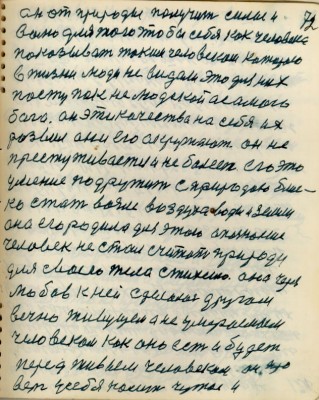 72
он от природы получит силы и
волю для того чтобы себя как человека
показывать таким человеком которого
в жизни люди не видали это для них
поступок не людской а самого
бога. он эти качества на себя их
развил они его окружают. он не
простуживается и не болеет его это
умение подружит с природою близ-
ко стат возле воздуха воды и земли
она его родила для этого а познание
человек не стал считать природу
для своего тела стихиею. она через
любов к ней сделает другом
вечно живущем а не умираемым
человеком как оно есть и будет
перед живыем человеком он
верг у себя чужое и